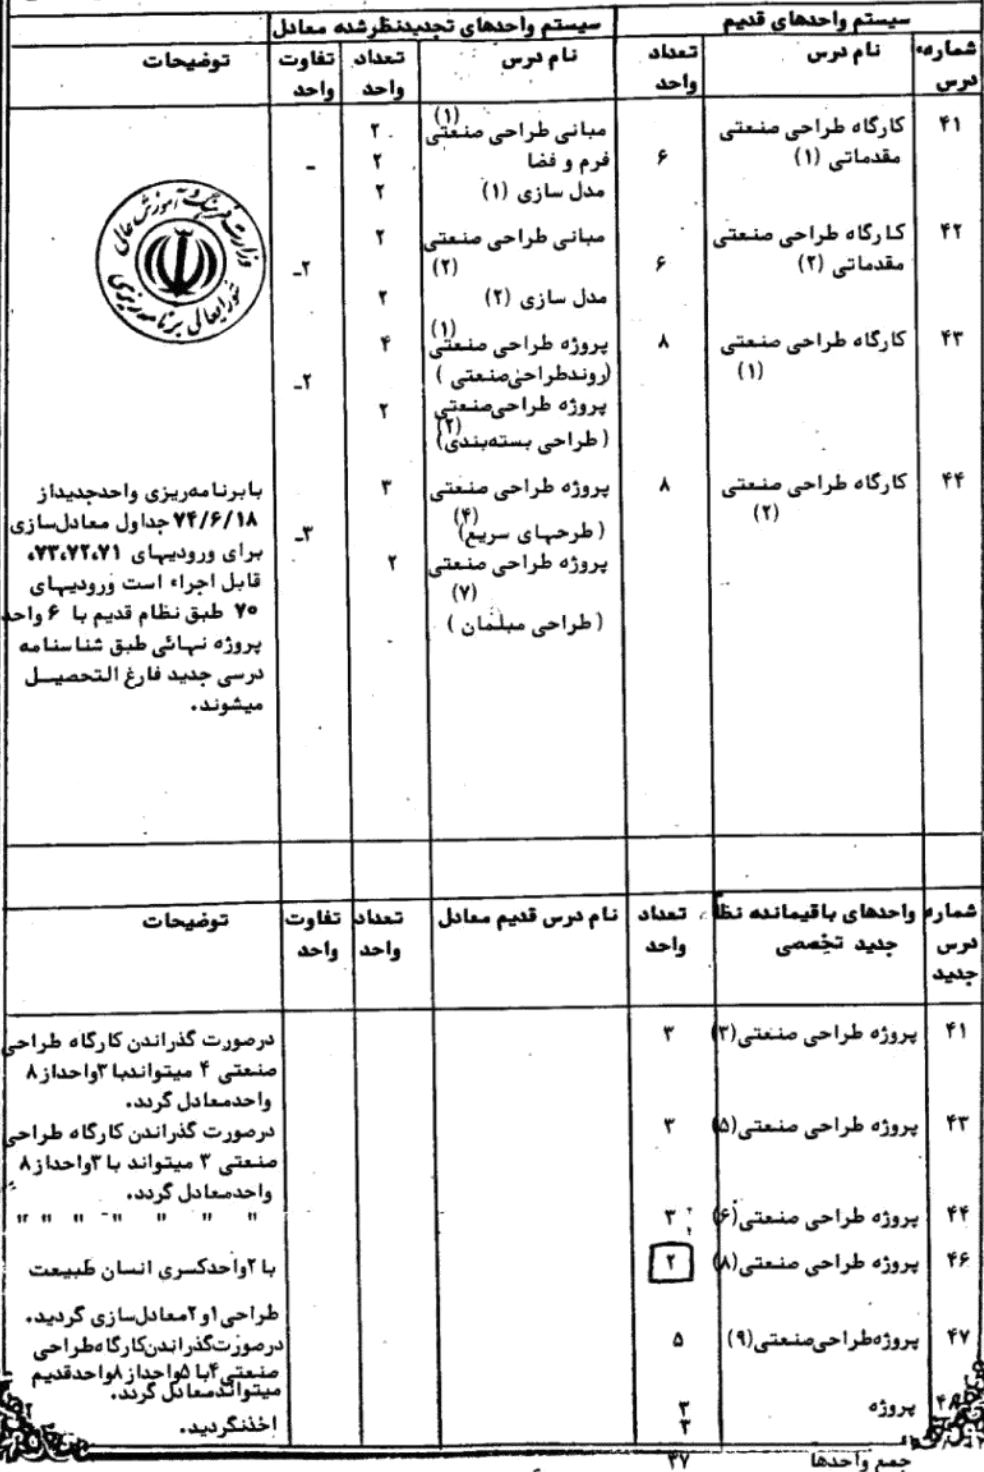 سیستم واحدهای قدیم
سیستم واحدهای تجدیدنظرشده معادل
شماره درس
نام درس
تعداد واحد
نام درس
تعداد واحد
تفاوت واحد
توضیحات
۴۱
کارگاه طراحی صنعتی
مقدماتی (۱)
۶
مبانی طراحی صنعتی (۱)
۲
فرم و فضا
۲
مدل سازی (۱)
۲
-
۴۲
کارگاه طراحی صنعتی
مقدماتی (۲)
۶
مبانی طراحی صنعتی
(۲)
۲
مدل سازی (۲)
۲
۲-
۴۳
کارگاه طراحی صنعتی
(۱)
۸
پروژه طراحی صنعتی (۱)
(روندطراحی‌صنعتی )
۴
پروژه طراحی‌صنعتی
(۲)
(طراحی بسته‌بندی)
۲
۲-
۴۴
کارگاه طراحی صنعتی
(۲)
۸
پروژه طراحی صنعتی
(۴)
(طرحهای سریع)
۳
پروژه طراحی صنعتی
(۷)
(طراحی مبلمان )
۲
۳-
بابرنامه‌ریزی واحدجدیداز
۷۴/۶/۱۸ جداول معادل‌سازی
برای ورودیهای ۷۳،۷۲،۷۱،
قابل اجراء است ورودیهای
۷۰ طبق نظام قدیم با ۶ واحد
پروژه نهائی طبق شناسنامه
درسی جدید فارغ التحصیل
میشوند.
وزارت فرهنگ و آموزش عالی
شورایعالی برنامه‌ریزی
شماره درس جدید
واحدهای باقیمانده نظا
جدید تخصصی
تعداد واحد
نام درس قدیم معادل
تعداد واحد
تفاوت واحد
توضیحات
۴۱
پروژه طراحی صنعتی(۳)
۳
درصورت گذراندن کارگاه طراحی
صنعتی ۴ میتواندبا ۳واحداز۸
واحدمعادل گردد.
۴۳
پروژه طراحی صنعتی(۵)
۳
درصورت گذراندن کارگاه طراحی
صنعتی ۳ میتواند با ۳واحداز۸
واحدمعادل گردد.
۴۴
پروژه طراحی صنعتی(۶)
۳
" " " " " " " "
۴۶
پروژه طراحی صنعتی(۸)
۲
با ۲واحدکسری انسان طبیعت
طراحی۱و۲معادل‌سازی گردید.
۴۷
پروژه‌طراحی‌صنعتی(۹)
۵
درصورت‌گذراندن‌کارگاه‌طراحی
صنعتی۴با ۵واحداز۸واحدقدیم
میتواندمعادل گردد.
۴۸
پروژه
۳
۳
اخذنگردید.
جمع واحدها
۴۷